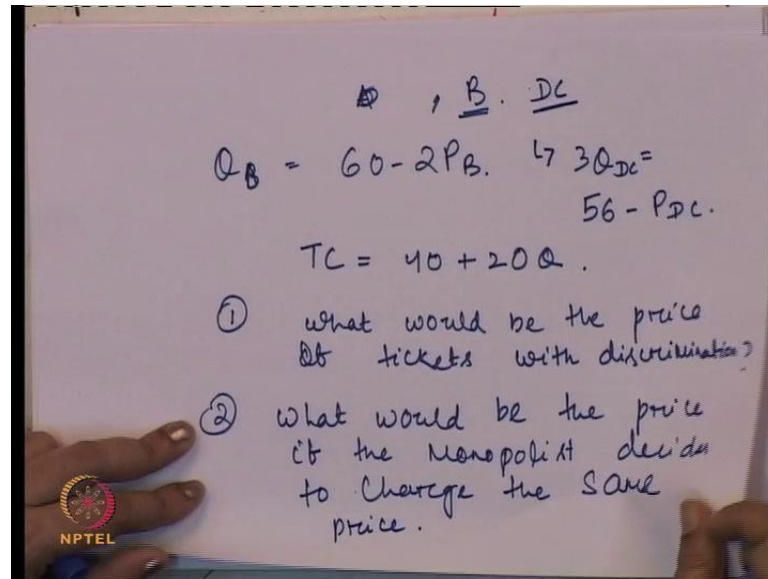 , B. DC
Q_B = 60 - 2P_B. ↳ 3Q_DC =
56 - P_DC.
TC = 40 + 20Q.
① What would be the price
of tickets with discrimination?
② What would be the price
if the Monopolist decide
to Charge the Same
price.
NPTEL